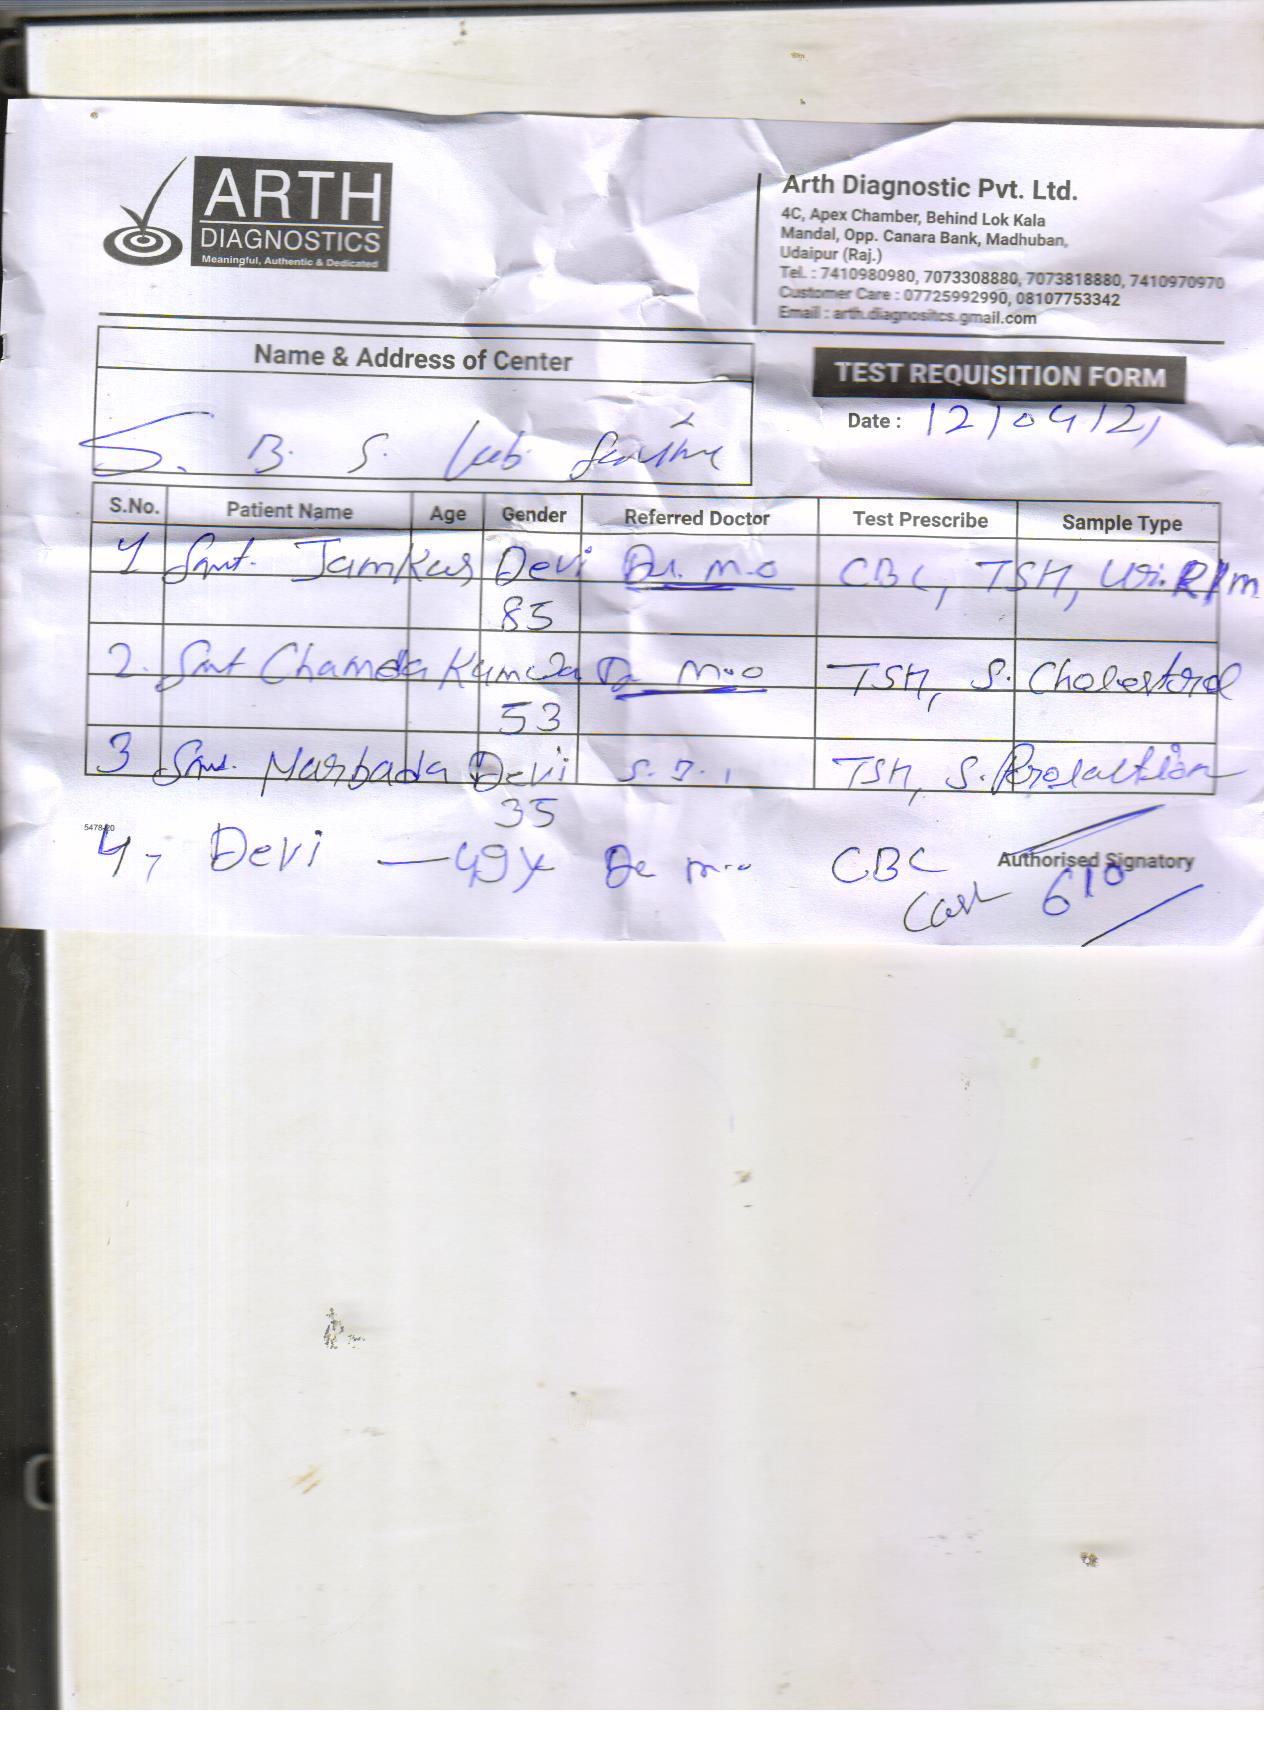 ARTH
DIAGNOSTICS
Meaningful, Authentic & Dedicated
Arth Diagnostic Pvt. Ltd.
4C, Apex Chamber, Behind Lok Kala
Mandal, Opp. Canara Bank, Madhuban,
Udaipur (Raj.)
Tel. : 7410980980, 7073308880, 7073818880, 7410970970
Customer Care : 07725992990, 08107753342
Email : arth.diagnositcs.gmail.com
Name & Address of Center
TEST REQUISITION FORM
Date : 12/04/21
S. B. S. Lab
S.No. Patient Name Age Gender Referred Doctor Test Prescribe Sample Type
1 Smt. Jamkus Devi Dr. m.o CBC, TSH, Uri. R/m
85
2. Smt Chamda Dr m.o TSH, S. Cholesterol
53
3 Smt. Narbada Devi S. J. TSH, S. Prolaction
35
5478-20
4, Devi — 49y De m.o CBC
Authorised Signatory
Cash 610